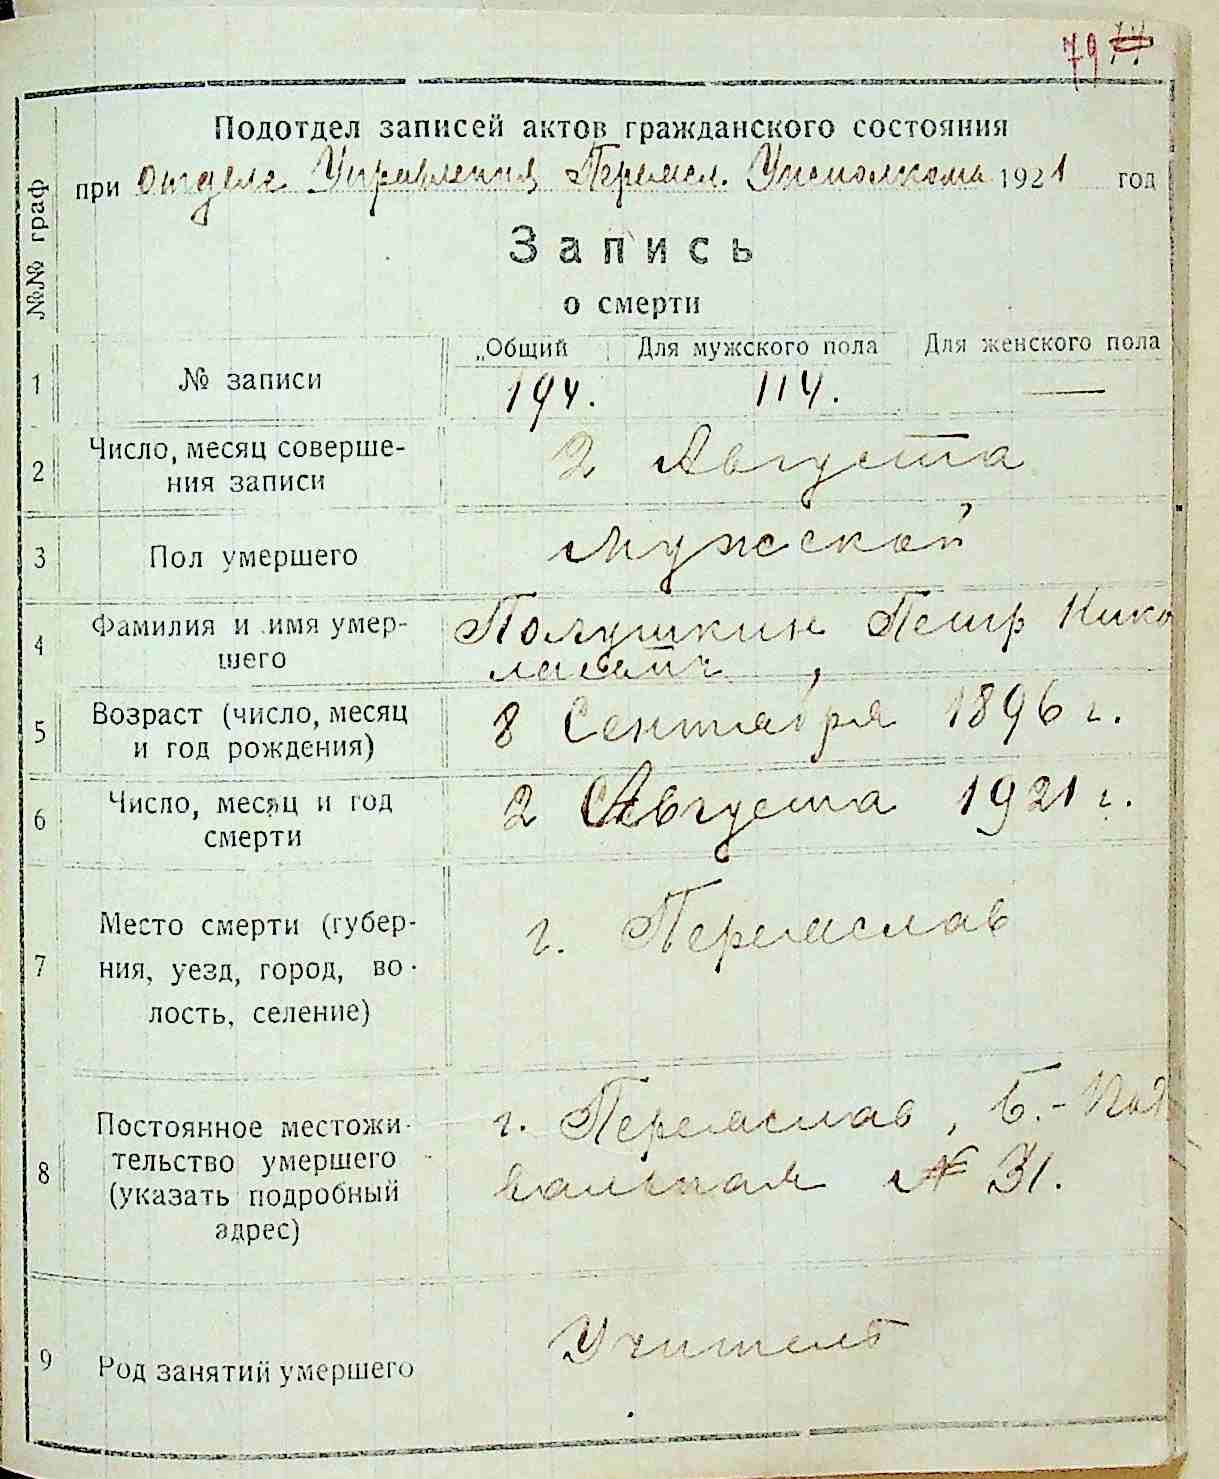 79
Подотдел записей актов гражданского состояния
при отделе Управления Переясл. Исполкома 1921 год
№№ граф
Запись
о смерти
„Общий Для мужского пола Для женского пола
1 № записи 194. 114. —
2 Число, месяц соверше-
ния записи 2 Августа
3 Пол умершего Мужской
4 Фамилия и имя умер-
шего Полушкин Петр Нико
лаевич
5 Возраст (число, месяц
и год рождения) 8 Сентября 1896 г.
6 Число, месяц и год
смерти 2 Августа 1921 г.
7 Место смерти (губер-
ния, уезд, город, во-
лость, селение) г. Переяслав
8 Постоянное местожи-
тельство умершего
(указать подробный
адрес) г. Переяслав, Б.-
вальная № 31.
9 Род занятий умершего Учитель